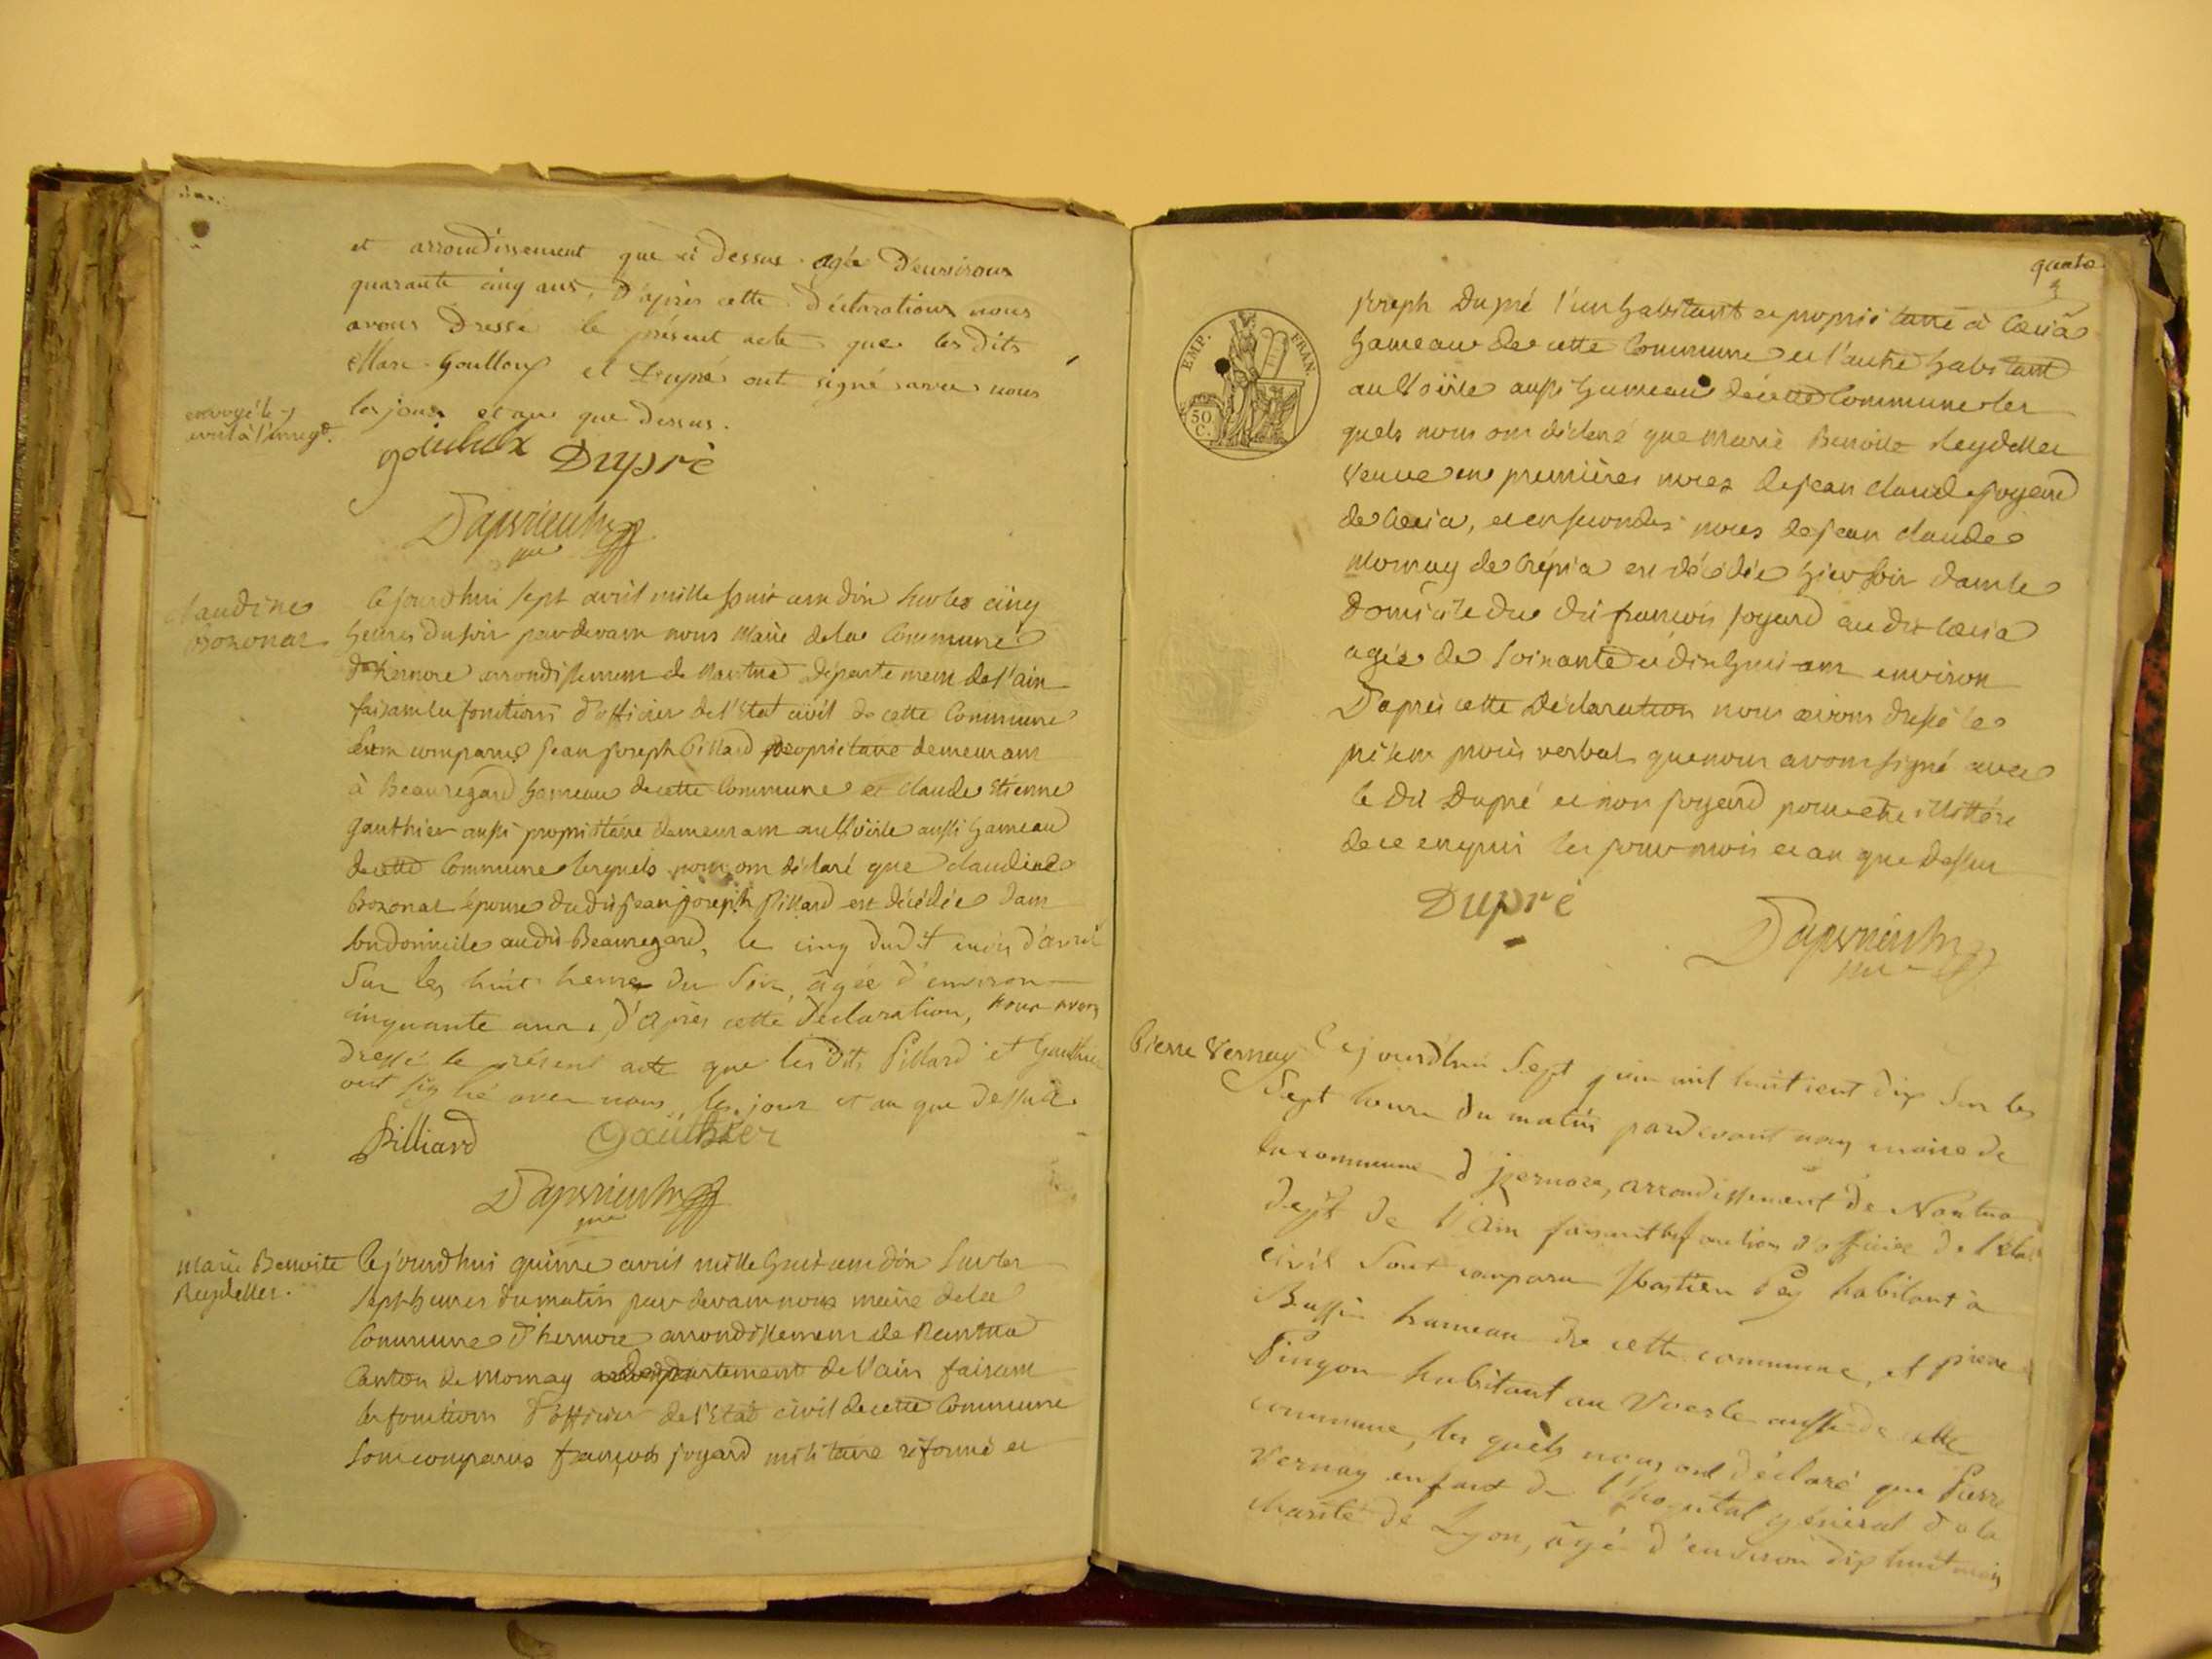 et arrondissement que ci dessus agée D'environ
quarante cinq ans, D'après cette Déclaration nous
avons Dressé le présent acte que les Dits
Marc Goullouf et Dupré ont signé avec nous
les jour et an que Dessus.
envoyé le 7
avril à l'enregt.
Dupré
Claudine
Bozonat
Cejourdhui sept avril mille huit cen dix sur les cinq
heures du soir par devam nous Maire de la Commune
d'hizernore arrondissemem de Nantua département de l'ain
faisam les fonctions d'officier de l'état civil de cette Commune
som comparus Jean Joseph Pillard propriétaire demeuram
à Beauregard hameau de cette Commune et Claude Etienne
Gauthier aussi propriétaire demeuram au Voërle aussi hameau
de cette Commune lesquels nous om déclaré que Claudine
Bozonat épouse du dit Jean Joseph Pillard est décédée dans
son domicile audit Beauregard, le cinq dudit mois d'avril
Sur les huit heures du Soir, âgée d'environ
cinquante ans, d'après cette Déclaration, nous avons
dressé le présent acte que les dits Pillard et Gauthier
ont signé avec nous, les jour et an que dessus.
Pilliard Gauthier
Marie Benoite
Reydellet.
Cejourdhui quinze avril mille huit cem dix sur les
sept heures du matin par devam nous maire de la
Commune d'hernore arrondissemem de Nantua
Canton de Mornay département de l'ain faisam
les fonctions d'officier de l'Etat civil de cette Commune
som comparus françois joyard militaire réformé et
quatre
EMP. FRAN.
50 C.
Joseph Dupré l'un habitant et propriétaire à Ceissia
hameau de cette Commune et l'autre habitant
au Voërle aussi hameau de cette Commune les
quels nous om déclaré que Marie Benoite Reydellet
Veuve en premières noces de Jean Claude Joyard
de Ceissia, et en secondes noces de Jean Claude
Mornay de Crépia est décédée hier soir dans le
Domicile du dit françois Joyard au dit Ceissia
agée de soixante et dix huit ans environ
D'après cette Déclaration nous avons dressé le
présent procès verbal que nous avons signé avec
le dit Dupré et non Joyard pour être illittéré
de ce enquis les jour mois et an que Dessus
Dupré
Pierre Vernay
Cejourd'hui Sept juin mil huit cent dix Sur les
Sept heures du matin pardevant nous maire de
la commune d'jzernore, arrondissement de Nantua
dept de l'Ain faisant les fonctions d'officier de l'état
civil Sont comparu Sbastien Pey habitant à
Bussi hameau de cette commune, et pierre
Pingon habitant au Voerle aussi de cette
commune, les quels nous ont déclaré que Pierre
Vernay enfant de l'hopital général de la
charité de Lyon, âgé d'environ dix huit mois